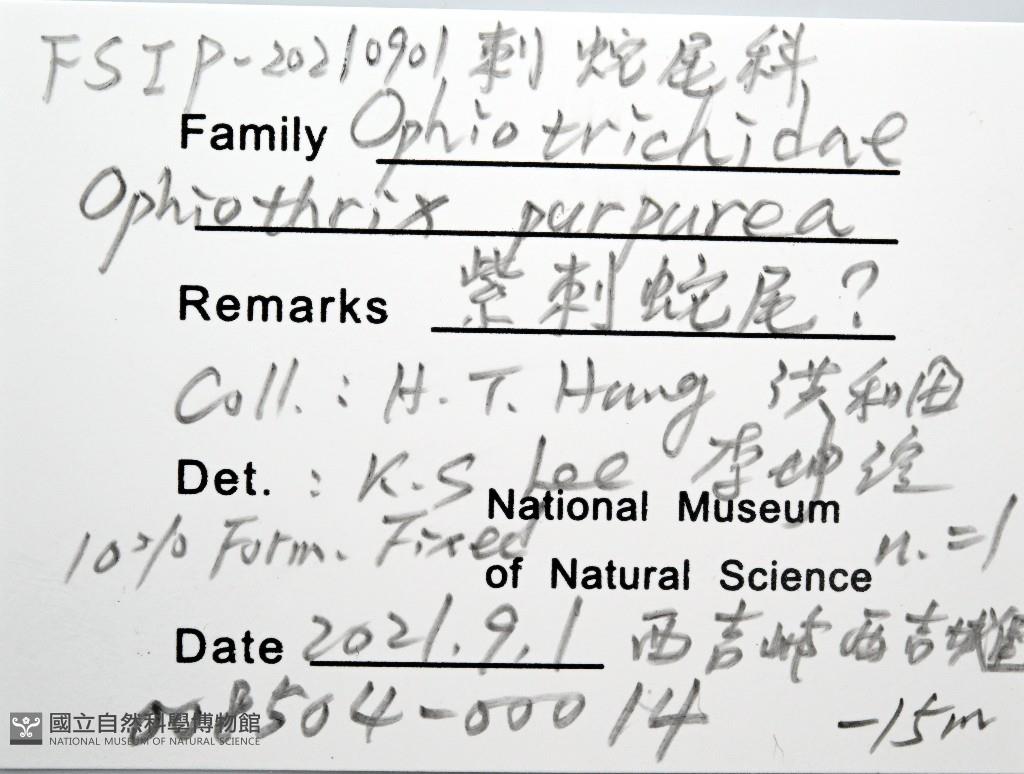 FSIP-20210901 刺蛇尾科
Family Ophiotrichidae
Ophiothrix purpurea
Remarks 紫刺蛇尾?
Coll.: H.T. Hung 洪和田
Det.: K.S Lee 李坤瑄
National Museum
10% Form. Fixed n.=1
of Natural Science
Date 2021.9.1 西吉嶼西吉
008504-00014 -15m
國立自然科學博物館
NATIONAL MUSEUM OF NATURAL SCIENCE